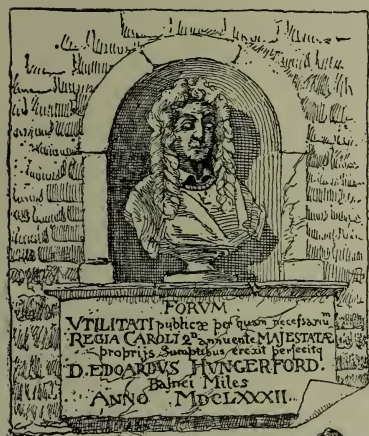 FORVM
VTILITATI publicæ per quam necessariū
REGIA CAROLI 2ᵈⁱ annuente MAJESTATÆ
proprijs Sumptibus erexit perfecitq
D. EDOARDVS HVNGERFORD.
Balnei Miles
ANNO MDCLXXXII.